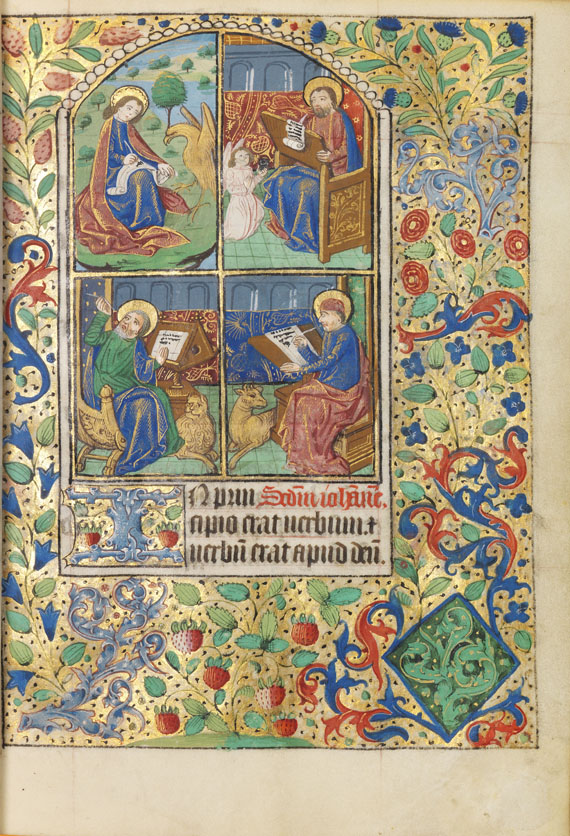 IN prin Scdm iohanne.
cipio erat uerbum. &
uerbū erat apud deū.